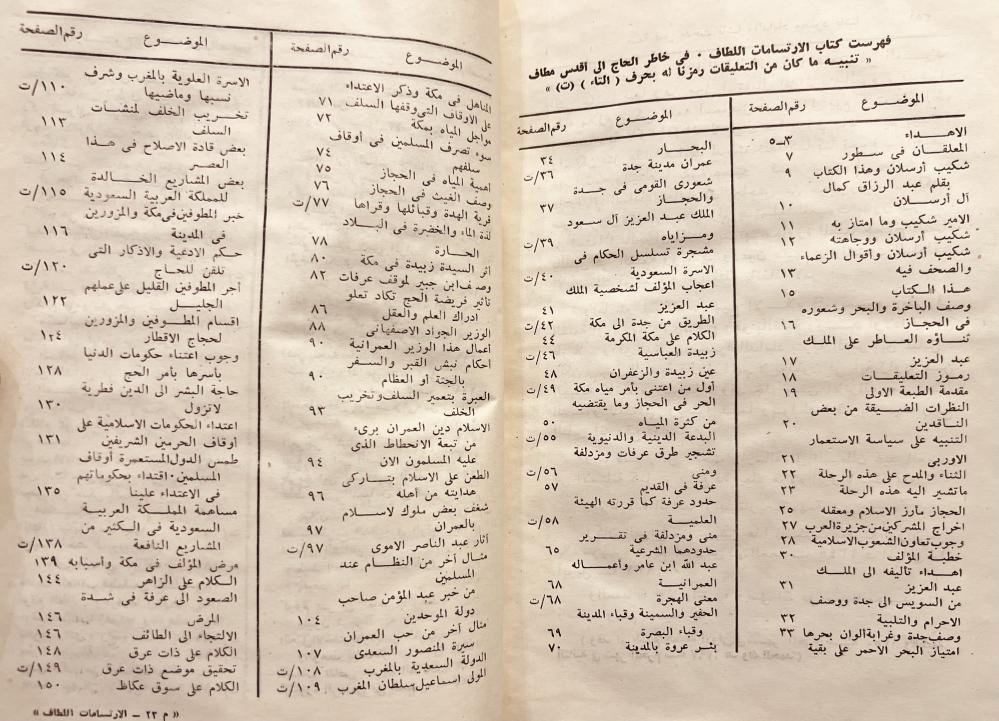 فهرست كتاب الارتسامات اللطاف · في خاطر الحاج الى أقدس مطاف
« تنبيه ما كان من التعليقات رمزنا له بحرف ( التاء ) (ت) »
الموضوع رقم الصفحة
الاهداء ٣ــ٥
المعلقان فى سطور ٧
شكيب أرسلان وهذا الكتاب ٩
بقلم عبد الرزاق كمال
آل أرسلان ١٠
الامير شكيب وما امتاز به ١١
شكيب أرسلان ووجاهته ١٢
شكيب أرسلان وأقوال الزعماء
والصحف فيه ١٣
هذا الكتاب ١٥
وصف الباخرة والبحر وشعوره
فى الحجاز ١٦
ثناؤه العاطر على الملك
عبد العزيز ١٧
رموز التعليقات ١٨
مقدمة الطبعة الاولى ١٩
النظرات الضيقة من بعض
الناقدين ٢٠
التنبيه على سياسة الاستعمار
الاوربى ٢١
الثناء والمدح على هذه الرحلة ٢٢
ماتشير اليه هذه الرحلة ٢٣
الحجاز مارز الاسلام ومعقله ٢٥
اخراج المشركين من جزيرة العرب ٢٧
وجوب تعاون الشعوب الاسلامية ٢٨
خطبة المؤلف ٣٠
اهداء تأليفه الى الملك
عبد العزيز ٣١
من السويس الى جدة ووصف
الاحرام والتلبية ٣٢
وصف جدة وغرابة ألوان بحرها ٣٣
امتياز البحر الاحمر على بقية
الموضوع رقم الصفحة
البحار ٣٤
عمران مدينة جدة ٣٦/ت
شعورى القومى فى جدة
والحجاز ٣٧
الملك عبد العزيز آل سعود
ومزاياه ٣٩/ت
مشجرة تسلسل الحكام فى
الاسرة السعودية ٤٠/ت
اعجاب المؤلف لشخصية الملك
عبد العزيز ٤١
الطريق من جدة الى مكة ٤٢/ت
الكلام على مكة المكرمة ٤٤
زبيدة العباسية ٤٦/ت
عين زبيدة والزعفران ٤٨
أول من اعتنى بأمر مياه مكة ٤٩/ت
الحر فى الحجاز وما يقتضيه
من كثرة المياه ٥٠
البدعة الدينية والدنيوية ٥٥/ت
تشجير طرق عرفات ومزدلفة
ومنى ٥٦/ت
عرفة فى القديم ٥٧
حدود عرفة كما قررته الهيئة
العلمية ٥٨/ت
منى ومزدلفة فى تقرير
حدودهما الشرعية ٦٥
عبد الله ابن عامر وأعماله
العمرانية ٦٨
معنى الهجرة ٦٨/ت
الحفير والسمينة وقباء المدينة
وقباء البصرة ٦٩
بئر عروة بالمدينة ٧٠
الموضوع رقم الصفحة
المناهل فى مكة وذكر الاعتداء
على الاوقاف التى وقفها السلف ٧١
مواجل المياه بمكة ٧٢
سوء تصرف المسلمين فى أوقاف
سلفهم ٧٤
اهمية المياه فى الحجاز ٧٥
وصف الغيث فى الحجاز ٧٦
قرية الهدة وقبائلها وقراها ٧٧/ت
لذة الماء والخضرة فى البلاد
الحارة ٧٨
اثر السيدة زبيدة فى مكة ٨٠
وصف ابن جبير لموقف عرفات ٨٢
تأثير فريضة الحج تكاد تعلو
ادراك العلم والعقل ٨٦
الوزير الجواد الاصفهانى ٨٨
أعمال هذا الوزير العمرانية ٩٠
احكام نبش القبر والسفر
بالجثة أو العظام ٩٠
العبرة بتعمير السلف وتخريب
الخلف ٩٣
الاسلام دين العمران برىء
من تبعة الانحطاط الذى
عليه المسلمون الان ٩٤
الطعن على الاسلام بتاركى
هدايته من أهله ٩٦
شغف بعض ملوك لاسلام
بالعمران ٩٧
آثار عبد الناصر الاموى ٩٧/ت
مثال آخر من النظام عند
المسلمين
من خبر عبد المؤمن صاحب
دولة الموحدين ١٠٤
مثال آخر من حب العمران
سيرة المنصور السعدى ١٠٧
الدولة السعدية بالمغرب ١٠٨/ت
المولى اسماعيل سلطان المغرب ١٠٩/ت
الموضوع رقم الصفحة
الاسرة العلوية بالمغرب وشرف
نسبها وماضيها ١١٠/ت
تخريب الخلف لمنشات
السلف ١١٣
بعض قادة الاصلاح فى هذا
العصر ١١٤
بعض المشاريع الخالدة
للمملكة العربية السعودية ١١٥/ت
خبر المطوفين فى مكة والمزورين
فى المدينة ١١٦
حكم الادعية والاذكار التى
تلقن للحاج ١٢٠/ت
أجر المطوفين القليل على عملهم
الجليل ١٢٢
اقسام المطوفين والمزورين
لحجاج الاقطار ١٢٤
وجوب اعتناء حكومات الدنيا
باسرها بأمر الحج ١٢٨
حاجة البشر الى الدين فطرية
لاتزول ١٣٠
اعتداء الحكومات الاسلامية على
أوقاف الحرمين الشريفين ١٣١
طمس الدول المستعمرة أوقاف
المسلمين · اقتداء بحكوماتهم
فى الاعتداء علينا ١٣٥
مساهمة المملكة العربية
السعودية فى الكثير من
المشاريع النافعة ١٣٨/ت
مرض المؤلف فى مكة وأسبابه ١٣٩
الكلام على الزاهر ١٤٤
الصعود الى عرفة فى شدة
المرض ١٤٦
الالتجاء الى الطائف ١٤٦
الكلام على ذات عرق ١٤٨
تحقيق موضع ذات عرق ١٤٩/ت
الكلام على سوق عكاظ ١٥٠
« م ٢٣ ــ الارتسامات اللطاف »